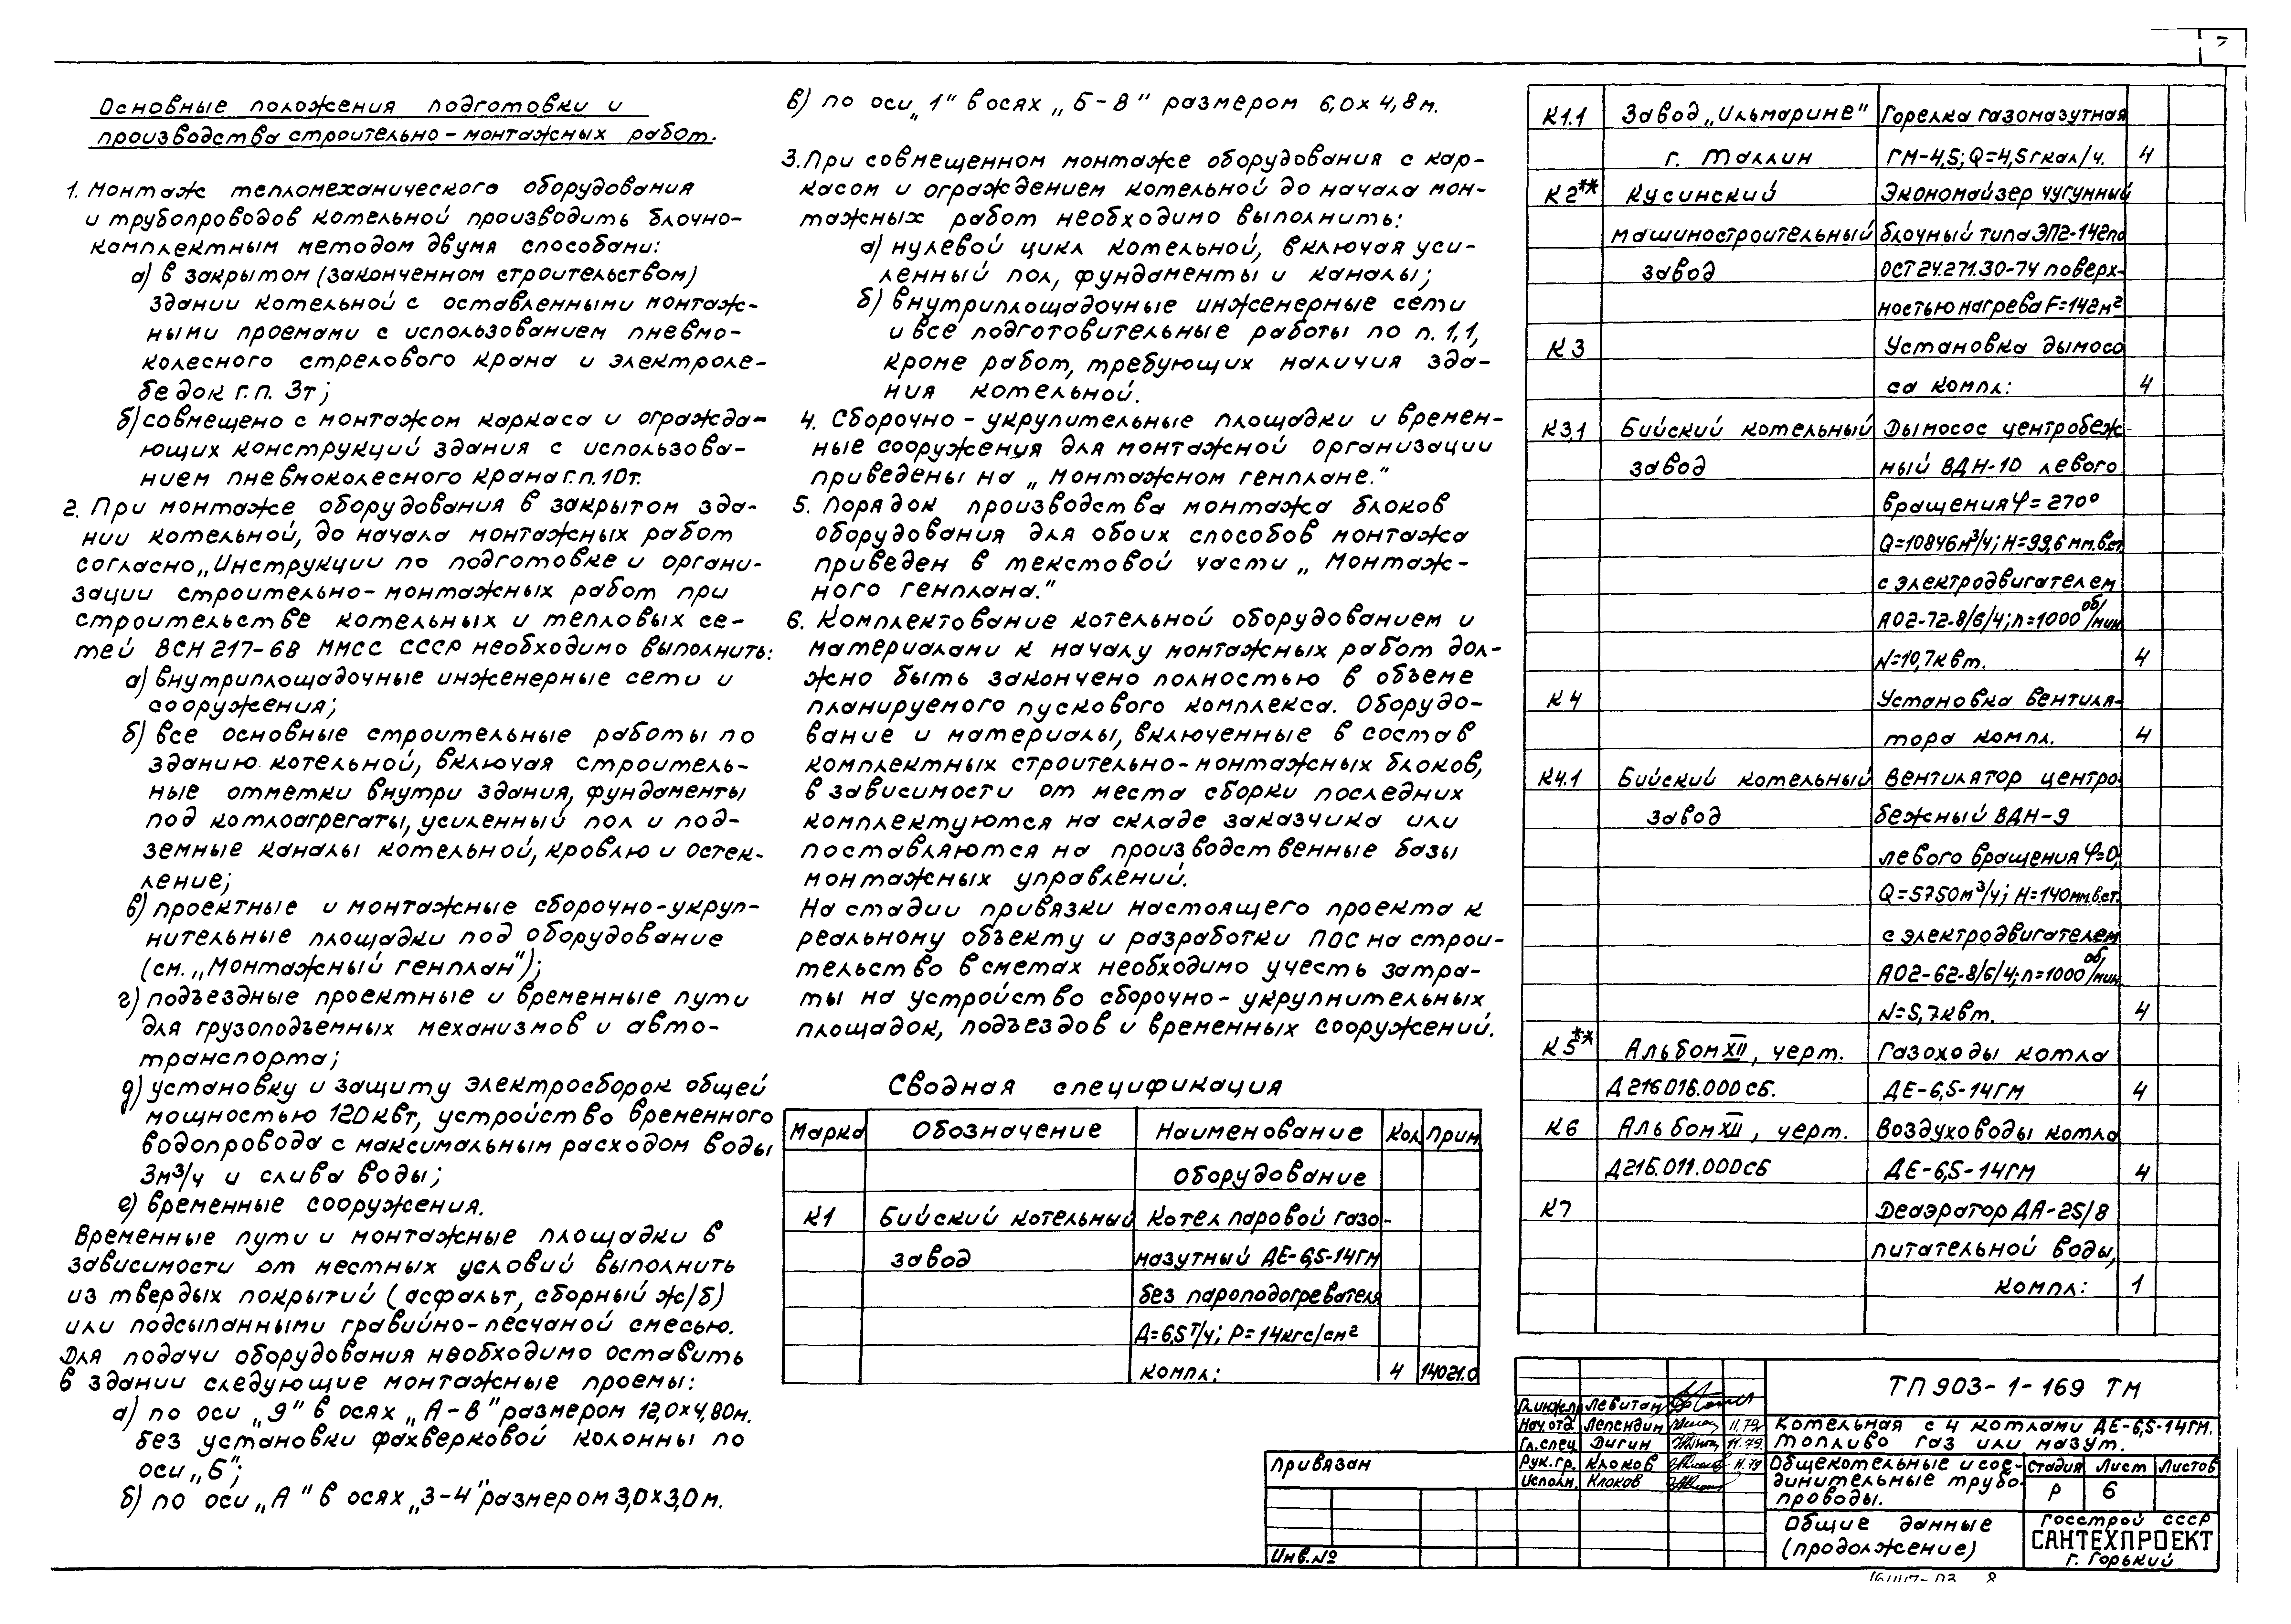 7
Основные положения подготовки и
производства строительно-монтажных работ.
1. Монтаж тепломеханического оборудования
и трубопроводов котельной производить блочно-
комплектным методом двумя способами:
а) в закрытом (законченном строительством)
здании котельной с оставленными монтаж-
ными проемами с использованием пневмо-
колесного стрелового крана и электроле-
бедок г.п. 3т;
б) совмещено с монтажом каркаса и огражда-
ющих конструкций здания с использова-
нием пневмоколесного крана г.п. 10т.
2. При монтаже оборудования в закрытом зда-
нии котельной, до начала монтажных работ
согласно „Инструкции по подготовке и органи-
зации строительно-монтажных работ при
строительстве котельных и тепловых се-
тей ВСН 217-68 ММСС СССР необходимо выполнить:
а) внутриплощадочные инженерные сети и
сооружения;
б) все основные строительные работы по
зданию котельной, включая строитель-
ные отметки внутри здания, фундаменты
под котлоагрегаты, усиленный пол и под-
земные каналы котельной, кровлю и остек-
ление;
в) проектные и монтажные сборочно-укруп-
нительные площадки под оборудование
(см. „Монтажный генплан");
г) подъездные проектные и временные пути
для грузоподъемных механизмов и авто-
транспорта;
д) установку и защиту электросборок общей
мощностью 120 квт, устройство временного
водопровода с максимальным расходом воды
3м³/ч и слива воды;
е) временные сооружения.
Временные пути и монтажные площадки в
зависимости от местных условий выполнить
из твердых покрытий (асфальт, сборный ж/б)
или подсыпанными гравийно-песчаной смесью.
Для подачи оборудования необходимо оставить
в здании следующие монтажные проемы:
а) по оси „9" в осях „А-В" размером 12,0х4,80м.
без установки фахверковой колонны по
оси „Б";
б) по оси „А" в осях „3-4" размером 3,0х3,0м.
в) по оси „1" в осях „Б-В" размером 6,0х4,8м.
3. При совмещенном монтаже оборудования с кар-
касом и ограждением котельной до начала мон-
тажных работ необходимо выполнить:
а) нулевой цикл котельной, включая уси-
ленный пол, фундаменты и каналы;
б) внутриплощадочные инженерные сети
и все подготовительные работы по п. 1,1,
кроме работ, требующих наличия зда-
ния котельной.
4. Сборочно-укрупительные площадки и времен-
ные сооружения для монтажной организации
приведены на „Монтажном генплане."
5. Порядок производства монтажа блоков
оборудования для обоих способов монтажа
приведен в текстовой части „Монтаж-
ного генплана."
6. Комплектование котельной оборудованием и
материалами к началу монтажных работ дол-
жно быть закончено полностью в объеме
планируемого пускового комплекса. Оборудо-
вание и материалы, включенные в состав
комплектных строительно-монтажных блоков,
в зависимости от места сборки последних
комплектуются на складе заказчика или
поставляются на производственные базы
монтажных управлений.
На стадии привязки настоящего проекта к
реальному объекту и разработки ПОС на строи-
тельство в сметах необходимо учесть затра-
ты на устройство сборочно-укрупнительных
площадок, подъездов и временных сооружений.
Сводная спецификация
Марка Обозначение Наименование Кол. Прим.
Оборудование
К1 Бийский котельный Котел паровой газо-
завод мазутный ДЕ-6,5-14ГМ
без пароподогревателя
Д=6,5т/ч; Р=14кгс/см²
компл: 4 14021.0
К1.1 Завод „Ильмарине" Горелка газомазутная
г. Таллин ГМ-4,5; Q=4,5гкал/ч. 4
К2** Кусинский Экономайзер чугунный
машиностроительный блочный типа ЭП2-142по
завод ОСТ 24.271.30-74 поверх-
ностью нагрева F=142м²
К3 Установка дымосо
са компл: 4
К3,1 Бийский котельный Дымосос центробеж-
завод ный ВДН-10 левого
вращения φ=270°
Q=10846м³/ч; Н=99,6 мм.в.ст.
с электродвигателем
АО2-72-8/6/4; n=1000 об/мин
N=10,7квт. 4
К4 Установка вентиля-
тора компл. 4
К4.1 Бийский котельный Вентилятор центро-
завод бежный ВДН-9
левого вращения φ=0,
Q=5750м³/ч; Н=140мм.в.ст.
с электродвигателем
АО2-62-8/6/4; n=1000 об/мин
N=5,7квт. 4
К5** Альбом XII, черт. Газоходы котла
Д216016.000СБ. ДЕ-6,5-14ГМ 4
К6 Альбом XII, черт. Воздуховоды котла
Д216.011.000СБ ДЕ-6,5-14ГМ 4
К7 Деаэратор ДА-25/8
питательной воды,
компл: 1
ТП 903-1-169 ТМ
Гл.инж.пр Левитан
Нач.отд. Лепендин 11.79
Гл.спец. Дигин 11.79.
Рук.гр. Клоков 11.79
Исполн. Клоков
Котельная с 4 котлами ДЕ-6,5-14ГМ.
Топливо газ или мазут.
Общекотельные и сое-
динительные трубо-
проводы.
Стадия Лист Листов
Р 6
Общие данные
(продолжение)
Госстрой СССР
САНТЕХПРОЕКТ
г. Горький
Привязан
Инв.№
16447-03 8